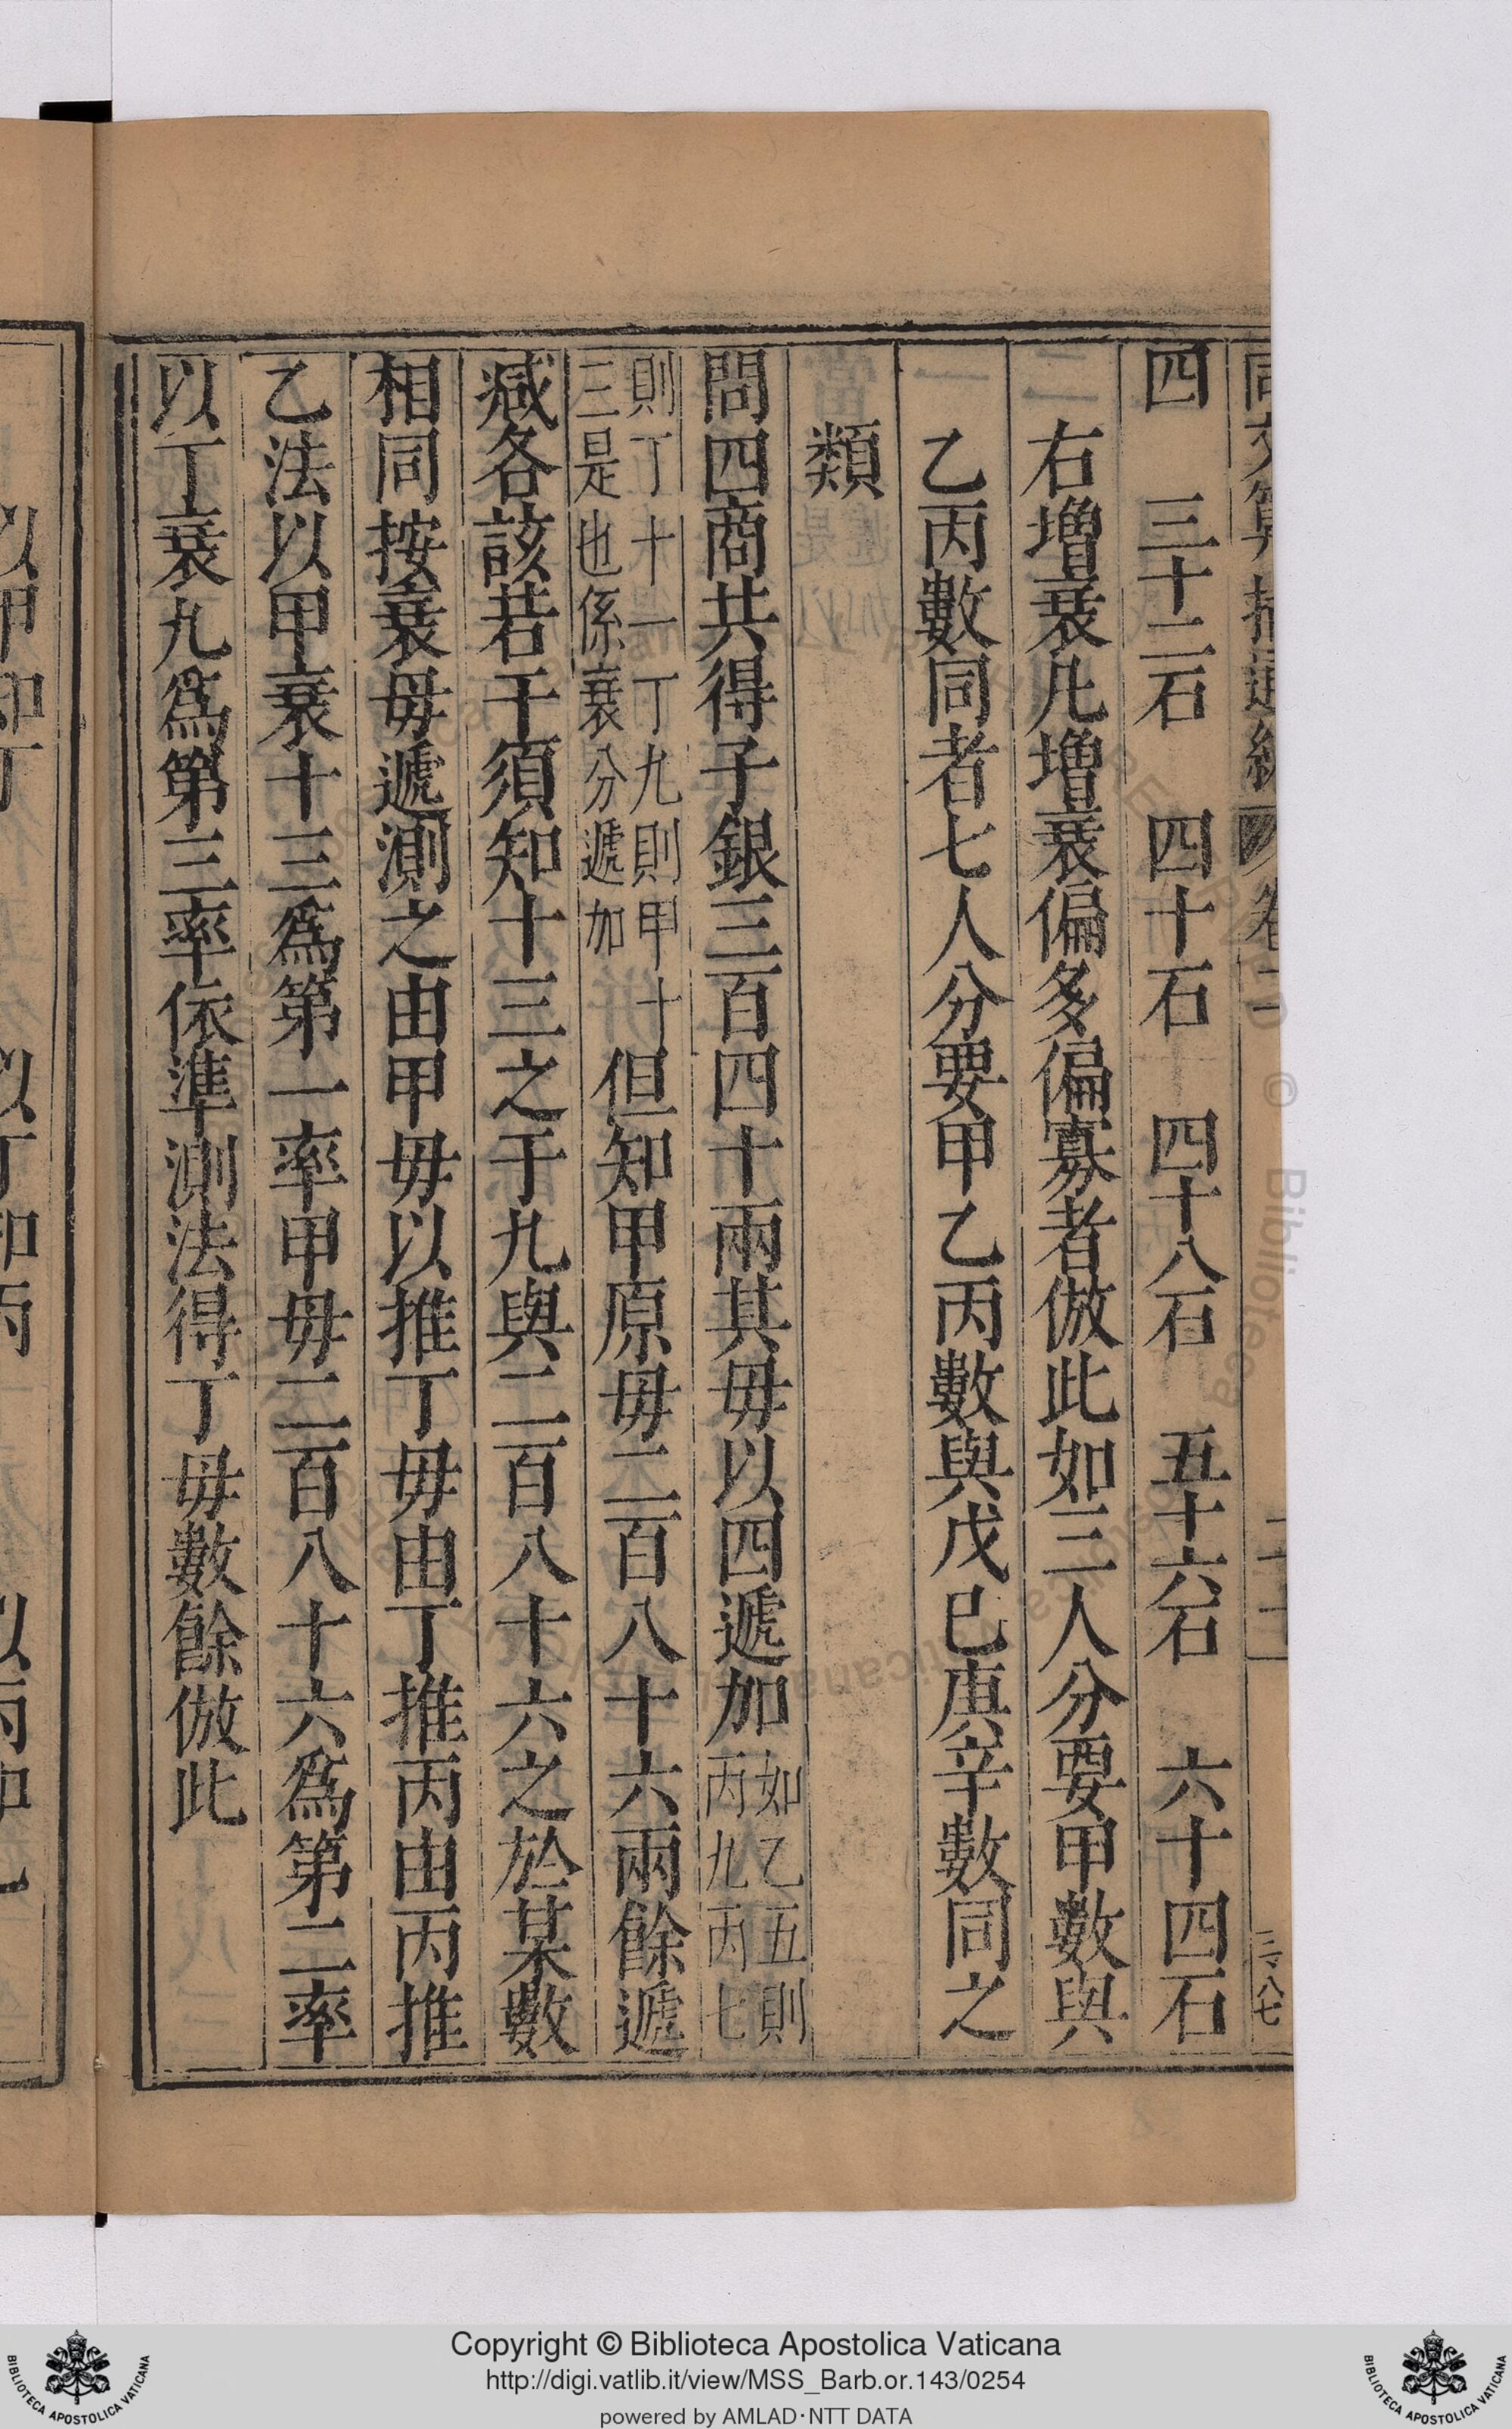 四　三十二石　四十石　四十八石　五十六石　六十四石
右增衰凡增衰偏多偏寡者倣此如三人分要甲數與
乙丙數同者七人分要甲乙丙數與戊巳庚辛數同之
類
問四商共得子銀三百四十兩其毋以四遞加如乙五則丙九丙七
則丁十一丁九則甲十三是也係衰分遞加但知甲原毋二百八十六兩餘遞
減各該若干須知十三之于九與二百八十六之於某數
相同按衰毋遞測之由甲毋以推丁毋由丁推丙由丙推
乙法以甲衰十三爲第一率甲毋二百八十六爲第二率
以丁衰九爲第三率依準測法得丁毋數餘倣此
Copyright © Biblioteca Apostolica Vaticana
http://digi.vatlib.it/view/MSS_Barb.or.143/0254
powered by AMLAD·NTT DATA
BIBLIOTECA APOSTOLICA VATICANA
BIBLIOTECA APOSTOLICA VATICANA